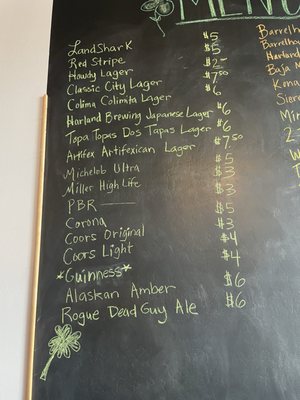 MENU
LandShark $5
Red Stripe $5
Howdy Lager $2-
Classic City Lager $7.50
Colima Colimita Lager $6
Harland Brewing Japanese Lager $6
Topa Topa Dos Tapas Lager $6
Artifex Artifexican Lager $7.50
Michelob Ultra $5
Miller High Life $3
PBR $3
Corona $5
Coors Original $3
Coors Light $4
*Guinness* $4
Alaskan Amber $6
Rogue Dead Guy Ale $6
Harland
Baja
Kona